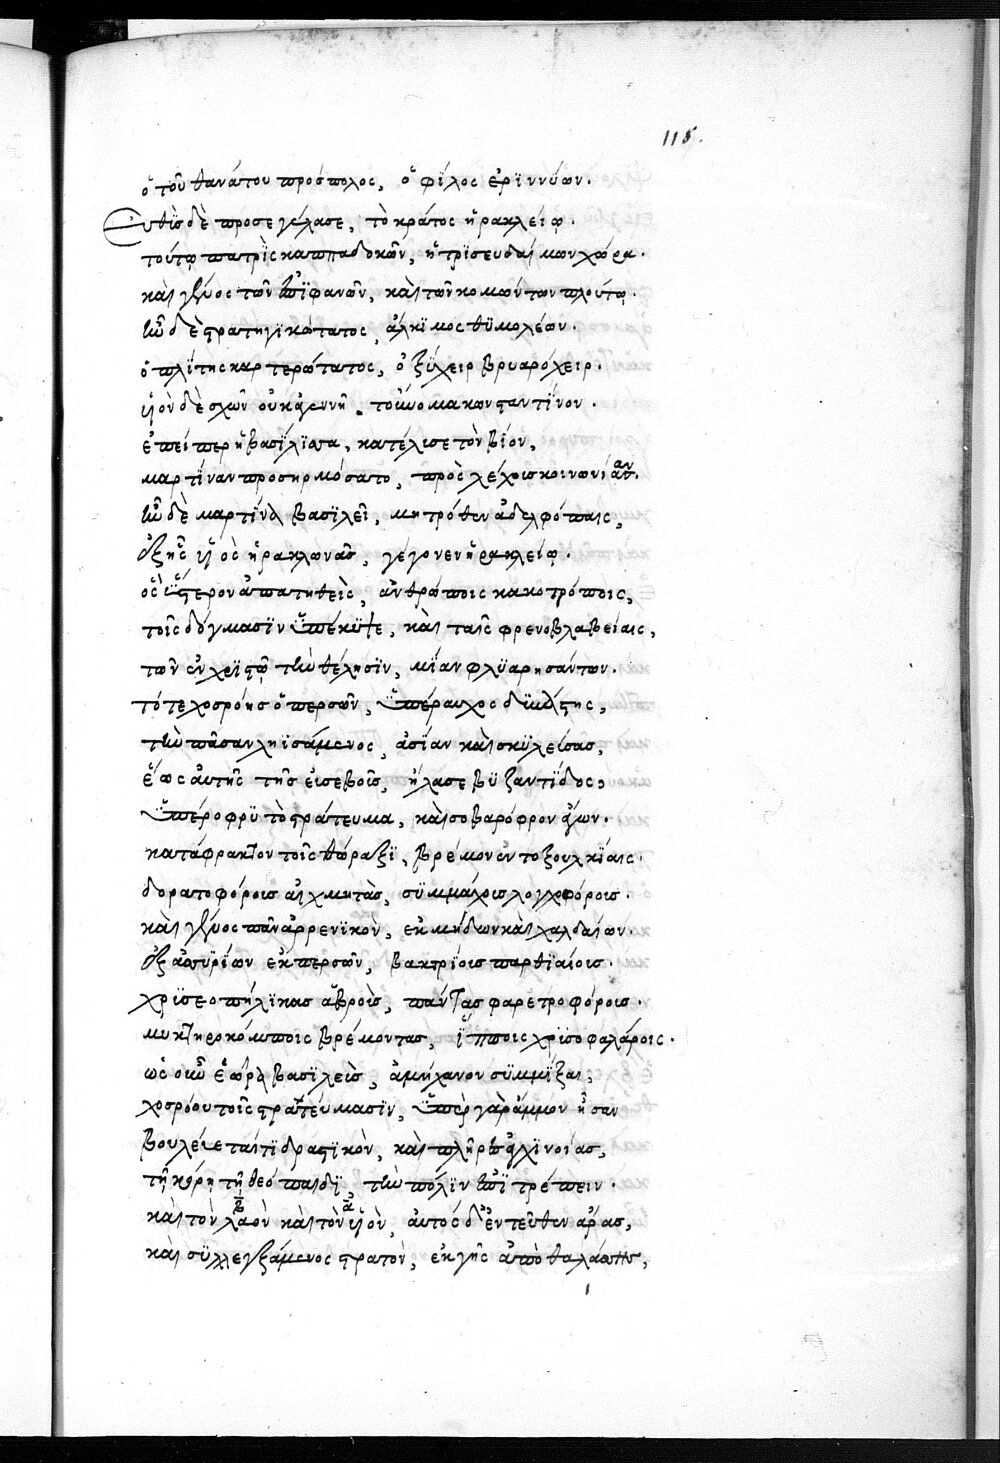 115.
ὁ τοῦ θανάτου πρόσπολος, ὁ φίλος ἐρϊννύων.
Εὐθὺς δὲ προσεγέλασε, τὸ κράτος ἡρακλείῳ.
τούτῳ πατρὶς καππαδοκῶν, ἡ τρισευδαίμων χώρα.
καὶ γένος τῶν ἐπϊφανῶν, καὶ τῶν κομώντων πλούτῳ.
ἦν δὲ στρατηγικώτατος, ἄλκϊμος θϋμολέων.
ὁπλίτης καρτερώτατος, ὀξύχειρ βρυαρόχειρ.
υἱὸν δὲ σχὼν οὐκ ἀγεννῆ. τοὔνομα κωνσταντῖνον.
ἐπείπερ ἡ βασίλισσα, κατέλισε τὸν βίον,
μαρτίναν προσηρμόσατο, πρὸς λέχοις κοινωνίαν.
ἦν δὲ μαρτίνα βασιλεῖ, μητρόθεν ἀδελφόπαις,
ἐξ ἧς υἱὸς ἡρακλωνᾶς, γέγονεν ἡρακλείῳ.
ὃς ὕστερον ἀπατηθεὶς, ἀνθρώποις κακοτρόποις,
τοῖς δόγμασϊν ὑπέκυψε, καὶ ταῖς φρενοβλαβείαις,
τῶν ἐν χρϊστῷ τὴν θέλησϊν, μίαν φλϋαρησάντων.
τότε χοσρόης ὁ περσῶν, ὑπέραυχος δϋνάστης,
τὴν πᾶσαν ληϊσάμενος, ἀσίαν καὶ σκϋλεύσας,
ἕως αὐτῆς τῆς εὐσεβοῦς, ἤλασε βϋζαντίδος,
ὑπέροφρϋ τὸ στράτευμα, καὶ σοβαρόφρον ἄγων.
κατάφρακτον τοῖς θώραξϊ, βρέμον ἐν τοξουλκίαις.
δορατοφόροις αἰχμητὰς, σϋμμάχοις λογχοφόροις.
καὶ γένος πᾶν ἀρρενϊκὸν, ἐκ μήδων καὶ χαλδαίων.
ἐξ ἀσσυρίων ἐκ περσῶν, βακτρίοις παρθϊαίοις.
χρϊσεοπήλϊκας ἁβροὺς, πάντας φαρετροφόροις.
μυκτηροκόμποις βρέμοντας, ἵπποις χρϊσοφαλάροις.
ὡς οὖν ἑώρα βασϊλεὺς, ἀμήχανον σϋμμίξαι,
χοσρόου τοῖς στρατεύμασϊν, ὑπὲρ γὰρ ἄμμον ἦσαν
βουλεύεταί τι δραστϊκὸν, καὶ πλῆρες ἀγχϊνοίας,
τῇ κόρῃ τῇ θεόπαιδϊ, τὴν πόλιν ἐπϊτρέπειν.
καὶ τὸν λαὸν καὶ τὸν υἱὸν, αὐτὸς δ' ἐντεῦθεν ἄρας,
καὶ σϋλλεξάμενος στρατὸν, ἐκ γῆς ἀπὸ θαλάσσης,